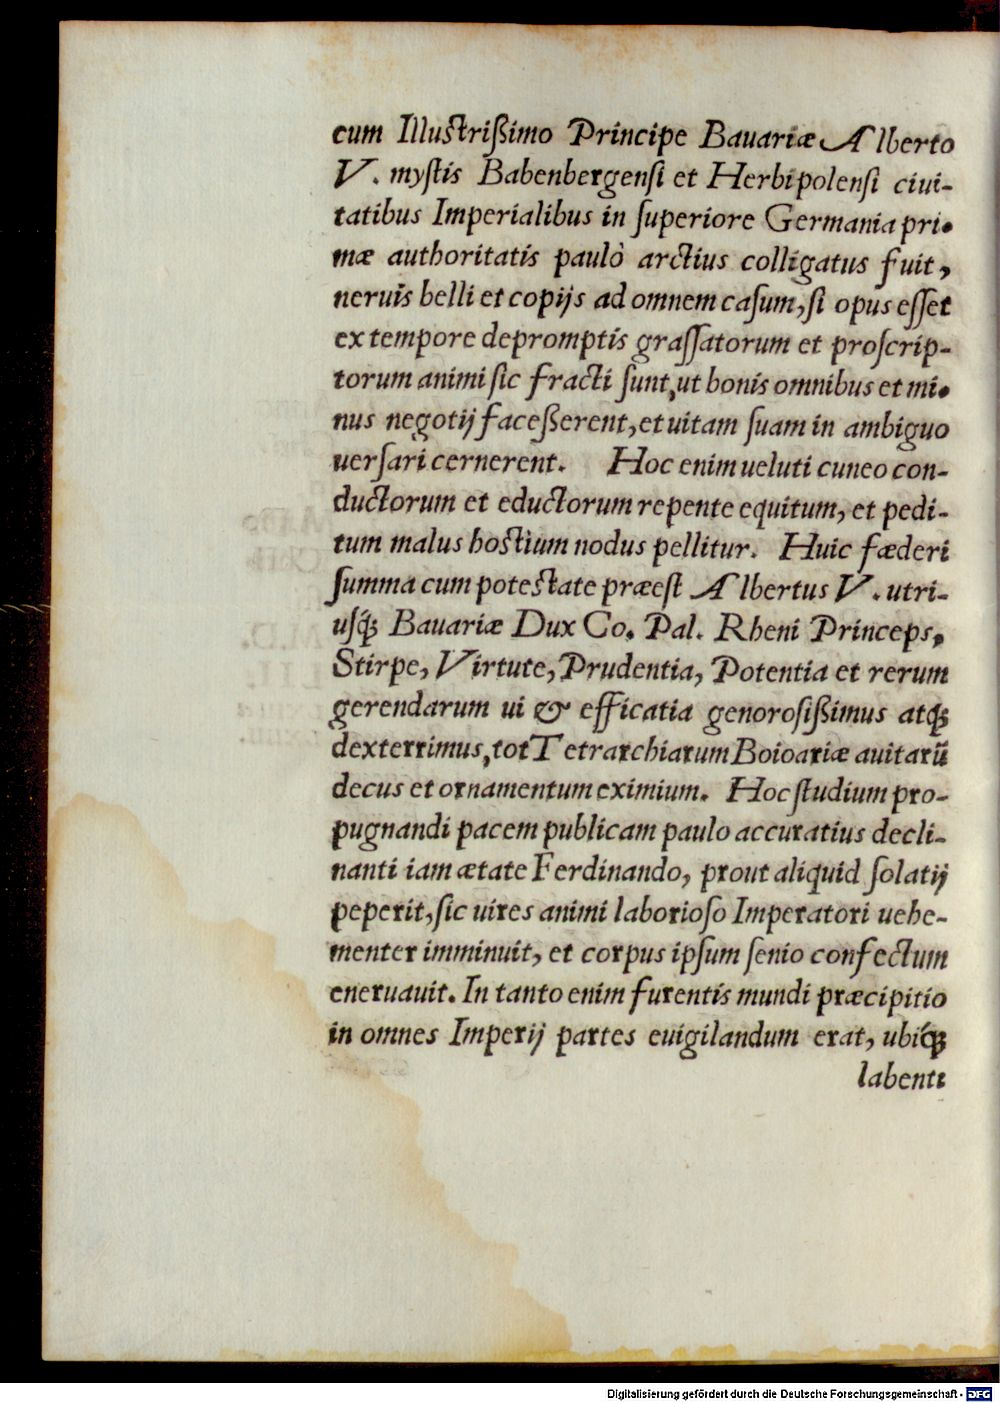 cum Illustrißimo Principe Bauariæ Alberto
V. mystis Babenbergenſi et Herbipolenſi ciui-
tatibus Imperialibus in ſuperiore Germania pri-
mæ authoritatis paulò arctius colligatus fuit,
neruis belli et copijs ad omnem caſum, ſi opus eſſet
ex tempore depromptis graſſatorum et proſcrip-
torum animi ſic fracti ſunt, ut bonis omnibus et mi-
nus negotij faceßerent, et uitam ſuam in ambiguo
uerſari cernerent. Hoc enim ueluti cuneo con-
ductorum et eductorum repente equitum, et pedi-
tum malus hostium nodus pellitur. Huic fæderi
ſumma cum potestate præeſt Albertus V. utri-
uſq́; Bauariæ Dux Co. Pal. Rheni Princeps,
Stirpe, Virtute, Prudentia, Potentia et rerum
gerendarum ui & efficatia genoroſißimus atq́;
dexterrimus, tot Tetrarchiarum Boioariæ auitarū
decus et ornamentum eximium. Hoc ſtudium pro-
pugnandi pacem publicam paulo accuratius decli-
nanti iam ætate Ferdinando, prout aliquid ſolatij
peperit, ſic uires animi laborioſo Imperatori uehe-
menter imminuit, et corpus ipſum ſenio confectum
eneruauit. In tanto enim furentis mundi præcipitio
in omnes Imperij partes euigilandum erat, ubiq́;
labenti
Digitalisierung gefördert durch die Deutsche Forschungsgemeinschaft - DFG